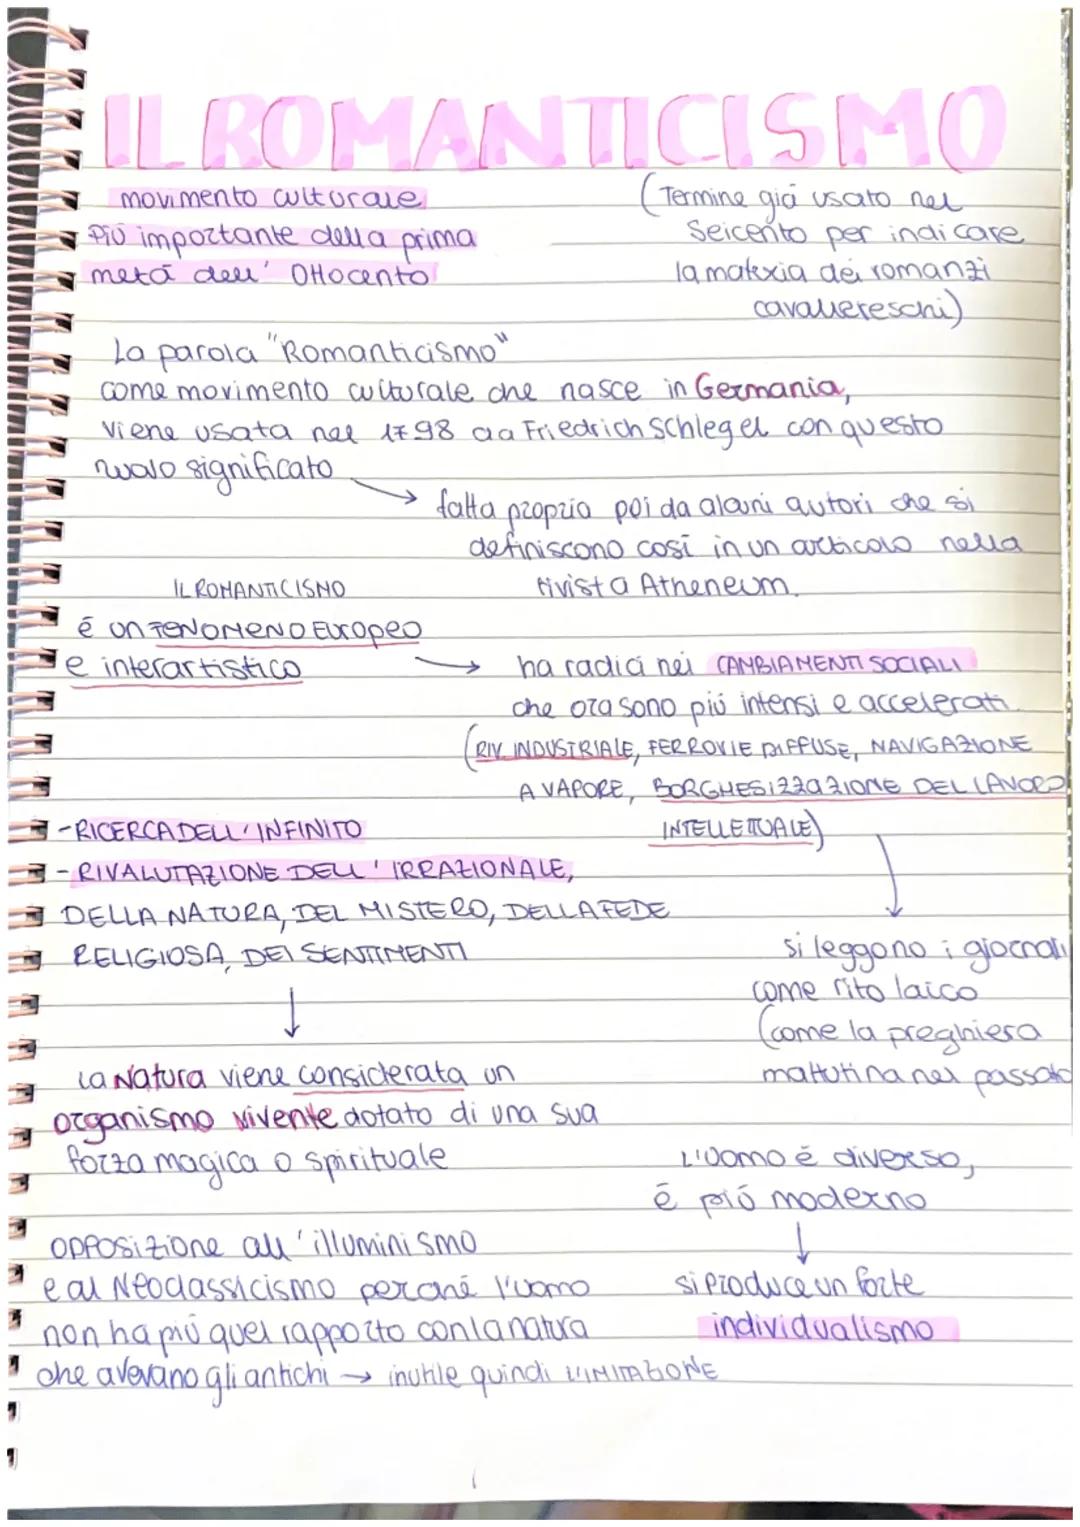 IL ROMANTICISMO
movimento culturale
più importante della prima
metà dell' Ottocento
(Termine già usato nel
Seicento per indicare
la materia dei romanzi
cavallereschi)
La parola "Romanticismo"
come movimento culturale che nasce in Germania,
viene usata nel 1798 da Friedrich Schlegel con questo
nuovo significato
fatta propria poi da alcuni autori che si
definiscono così in un articolo nella
rivista Atheneum.
IL ROMANTICISMO
è un FENOMENO Europeo
e interartistico →
ha radici nei CAMBIAMENTI SOCIALI
che ora sono più intensi e accelerati
(RIV. INDUSTRIALE, FERROVIE DIFFUSE, NAVIGAZIONE
A VAPORE, BORGHESIZZAZIONE DEL LAVORO
INTELLETTUALE)
-RICERCA DELL' INFINITO
-RIVALUTAZIONE DELL' IRRAZIONALE,
DELLA NATURA, DEL MISTERO, DELLA FEDE
RELIGIOSA, DEI SENTIMENTI
si leggono i giornali
come rito laico
(come la preghiera
mattutina nel passato
La Natura viene considerata un
organismo vivente dotato di una sua
forza magica o spirituale
L'uomo è diverso,
è più moderno
↓
si produce un forte
individualismo
opposizione all' illuminismo
e al Neoclassicismo perché l'uomo
non ha più quel rapporto con la natura
che avevano gli antichi → inutile quindi L'IMITAZIONE